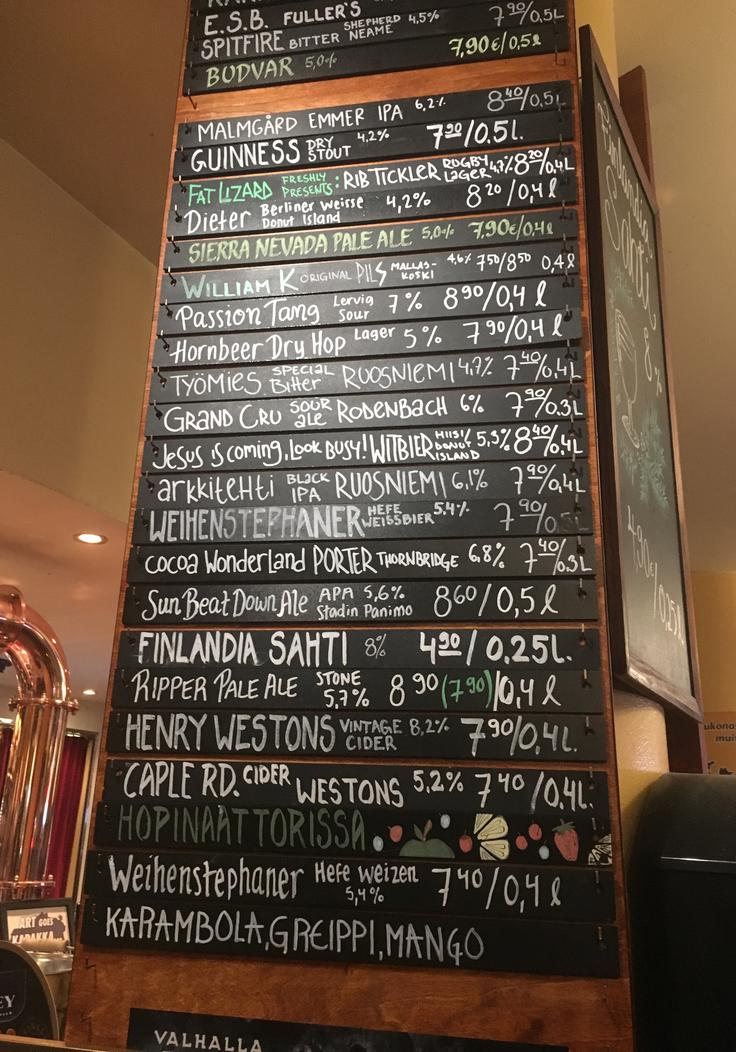 E.S.B. FULLER'S 4,5% 7⁹⁰/0,5L
SPITFIRE BITTER SHEPHERD NEAME
BUDVAR 5,0% 7,90€/0,5ℓ
MALMGÅRD EMMER IPA 6,2% 8⁴⁰/0,5L
GUINNESS DRY STOUT 4,2% 7⁹⁰/0.5L.
FAT LIZARD FRESHLY PRESENTS: RIB TICKLER RUGBY LAGER 4,7% 8²⁰/0,4L
Dieter Berliner Weisse Donut Island 4,2% 8²⁰/0,4ℓ
SIERRA NEVADA PALE ALE 5,0% 7,90€/0,4ℓ
WILLIAM K ORIGINAL PILS MALLASKOSKI 4,6% 7⁵⁰/8⁵⁰ 0,4ℓ
Passion Tang Lervig Sour 7% 8⁹⁰/0,4ℓ
Hornbeer Dry Hop Lager 5% 7⁹⁰/0,4ℓ
TYÖMIES SPECIAL Bitter RUOSNIEMI 4,7% 7⁴⁰/0,4L
GRAND CRU SOUR ale RODENBACH 6% 7⁹⁰/0.3L
Jesus is coming, Look BUSY! WITBIER HIISI/DONUT ISLAND 5,3% 8⁴⁰/0,4L
arkkitehti BLACK IPA RUOSNIEMI 6,1% 7⁹⁰/0,4L
WEIHENSTEPHANER HEFE WEISSBIER 5.4% 7⁹⁰/0,5L
cocoa Wonderland PORTER THORNBRIDGE 6,8% 7⁴⁰/0.3L
Sun Beat Down Ale APA 5,6% Stadin Panimo 8⁶⁰/0,5ℓ
FINLANDIA SAHTI 8% 4⁹⁰/0.25L.
RIPPER PALE ALE STONE 5,7% 8⁹⁰(7⁹⁰)/0,4ℓ
HENRY WESTONS VINTAGE CIDER 8,2% 7⁹⁰/0,4L.
CAPLE RD. CIDER WESTONS 5,2% 7⁴⁰/0,4L.
HOPINAATTORISSA
Weihenstephaner Hefe Weizen 5,4% 7⁴⁰/0,4ℓ
KARAMBOLA, GREIPPI, MANGO
VALHALLA
Finlandia
Sahti
8%
4,90/0,25L
ART GOES
KAPAKKA
EY